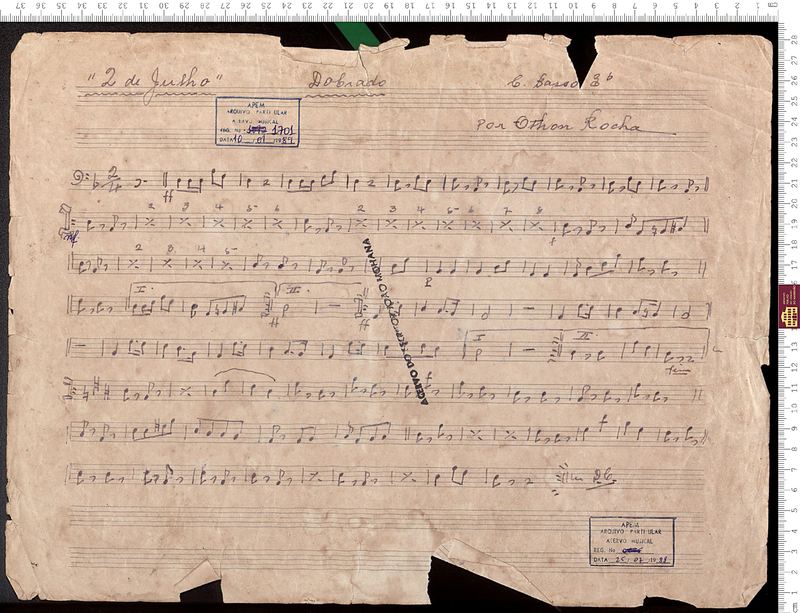 "2 de Julho" Dobrado C. Basso
APEM
ARQUIVO PARTICULAR
ACERVO MUSICAL
REG. No 1701
DATA 10 / 01 / 1989
Por Othon Rocha
2
4
ff
2 3 4 5 6 2 3 4 5 6 7 8
mf f
2 3 4 5
p
I. II.
ff ff
I II.
Fim
f
f
D.C.
ACERVO DO ESCRITOR JOÃO MOHANA
APEM
ARQUIVO PARTICULAR
ACERVO MUSICAL
REG. No
DATA 25 / 07 / 1988